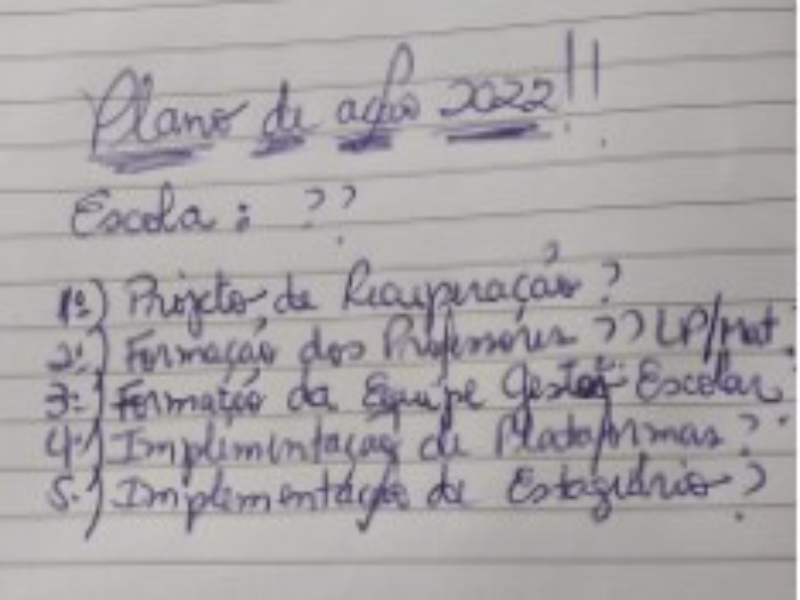 Plano de ação 2022!!
Escola: ??
1º) Projeto de Recuperação?
2º) Formação dos Professores?? LP/Mat.
3º) Formação da Equipe Gestor Escolar
4º) Implementação de Plataformas?
5.) Implementação de Estagiário?